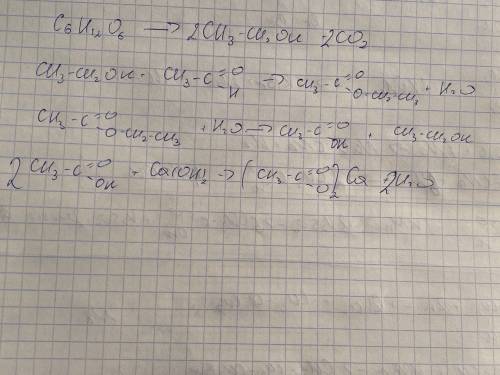 C6H12O6 → 2CH3-CH2OH 2CO2
CH3-CH2OH + CH3-C=O-H → CH3-C=O-O-CH2-CH3 + H2O
CH3-C=O-O-CH2-CH3 + H2O → CH3-C=O-OH + CH3-CH2OH
2CH3-C=O-OH + Ca(OH)2 → (CH3-C=O-O)2Ca 2H2O